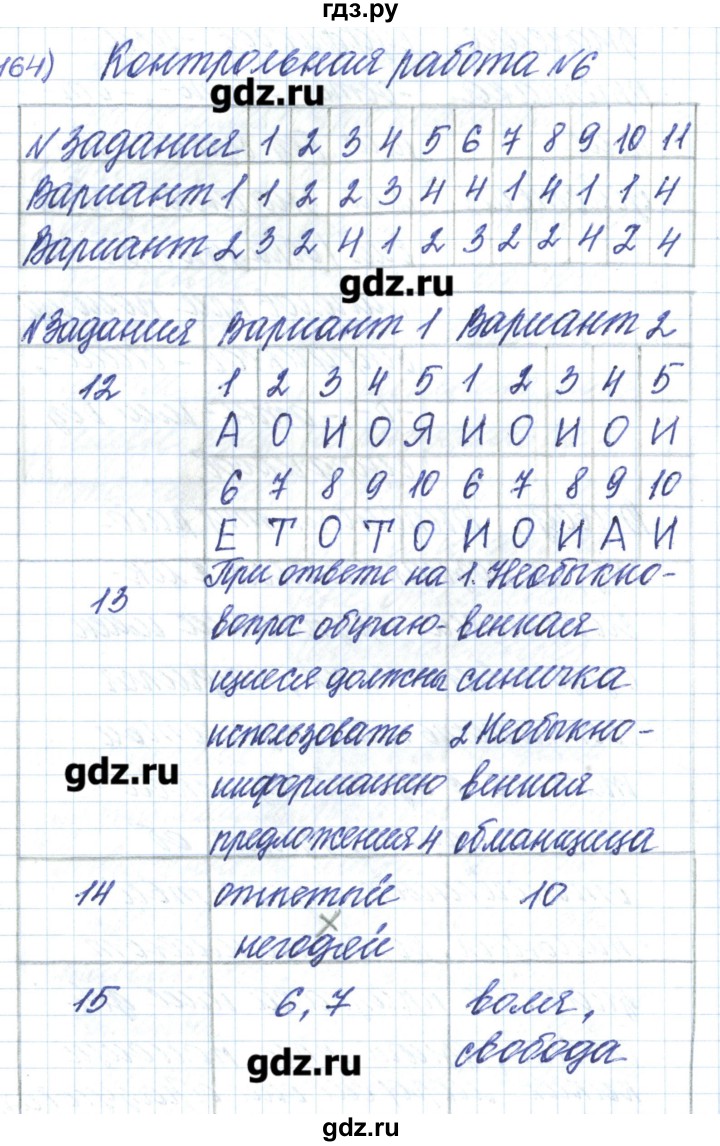 гдз.ру
164) Контрольная работа №6
gdz.ru
№ Задания 1 2 3 4 5 6 7 8 9 10 11
Вариант 1 1 2 2 3 4 4 1 4 1 1 4
Вариант 2 3 2 4 1 2 3 2 2 4 2 4
gdz.ru
№ Задания Вариант 1 Вариант 2
12 1 2 3 4 5 1 2 3 4 5
А О И О Я И О И О И
6 7 8 9 10 6 7 8 9 10
Е Т О Т О И О И А И
13 При ответе на 1. Необыкно-
вопрос обучаю- венная
щиеся должны синичка
использовать 2 Необыкно-
gdz.ru информацию венная
предложения 4 обманщица
14 отпетый 10
негодяй
15 6, 7 воля,
свобода
gdz.ru
gdz.ru